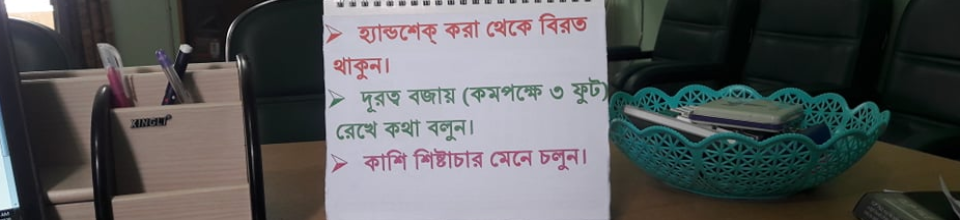 XINGLI
➢ হ্যান্ডশেক্ করা থেকে বিরত
থাকুন।
➢ দূরত্ব বজায় (কমপক্ষে ৩ ফুট)
রেখে কথা বলুন।
➢ কাশি শিষ্টাচার মেনে চলুন।